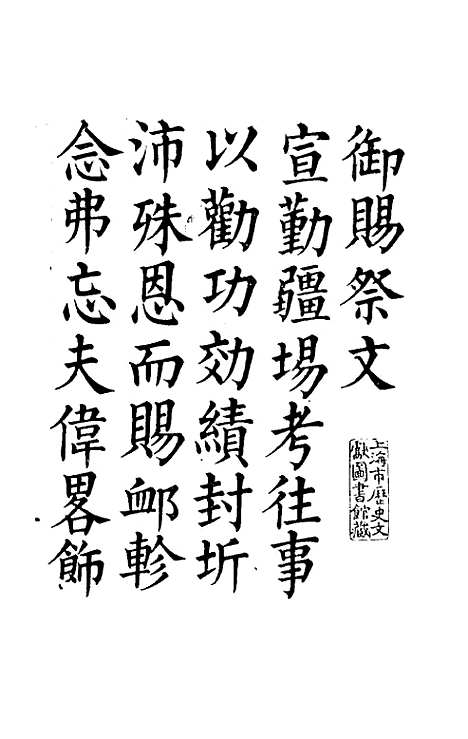 御賜祭文
宣勤疆埸考往事
以勸功効績封圻
沛殊恩而賜卹軫
念弗忘夫偉畧飾
上海市歷史文
獻圖書館藏